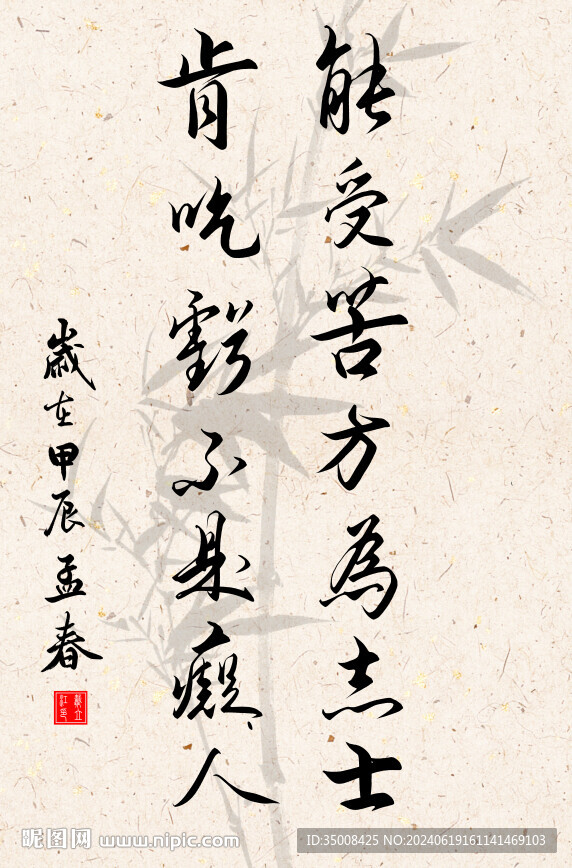 能受苦方為志士
肯吃虧不是癡人
歲在甲辰孟春
昵图网 www.nipic.com
ID:35008425 NO:20240619161141469103